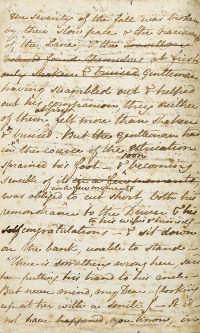 The severity of the fall was broken
by their slow pace & the narrowness
of the Lane; & the
found themselves at first
only shaken & bruised Gentleman
having scrambled out & helped
out his companion, they neither
of them felt more than shaken
& bruised. But the Gentleman had
in the course of the extrication
sprained his foot – & soon becoming
sensible of it
in a few moments
was obliged to cut short, both his
remonstrance to the Driver & his
congratulations to his wife & himself
& sit down
on the bank, unable to stand. –
"There is something wrong here, said
he – putting his hand to his ancle –
But never mind, my Dear – (looking
up at her with a smile) – It
not have happened, you know, in